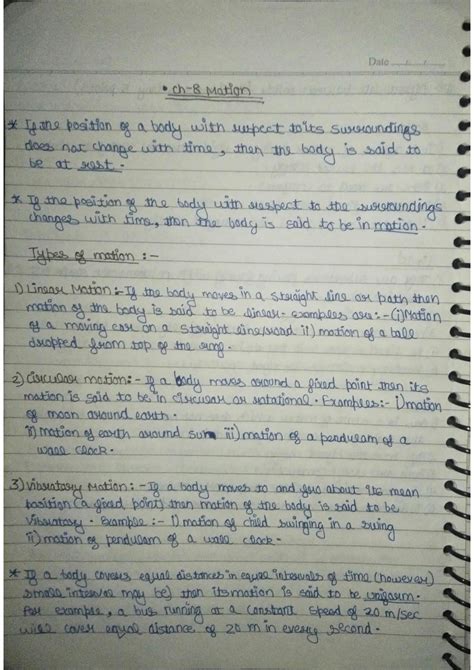 Date ___/___/___
• Ch-8 Motion
* If the position of a body with respect to its surroundings
does not change with time, then the body is said to
be at rest.
* If the position of the body with respect to the surroundings
changes with time, then the body is said to be in motion.
Types of motion :-
1) Linear Motion :- If the body moves in a straight line or path then
motion of the body is said to be linear. examples are :- (i) Motion
of a moving car on a straight line/road ii) motion of a ball
dropped from top of the
2) Circular motion :- If a body moves around a fixed point then its
motion is said to be in circular or rotational. Examples :- i) motion
of moon around earth.
ii) motion of earth around sun iii) motion of a pendulam of a
wall clock.
3) Vibratory Motion : - If a body moves to and fro about its mean
position (a fixed point) then motion of the body is said to be
vibratory. Example :- i) motion of child swinging in a swing
ii) motion of pendulam of a wall clock.
* If a body covers equal distances in equal intervals of time (however)
small interval may be) then its motion is said to be uniform.
For example, a bus running at a constant speed of 20 m/sec
will cover equal distance of 20 m in every second.